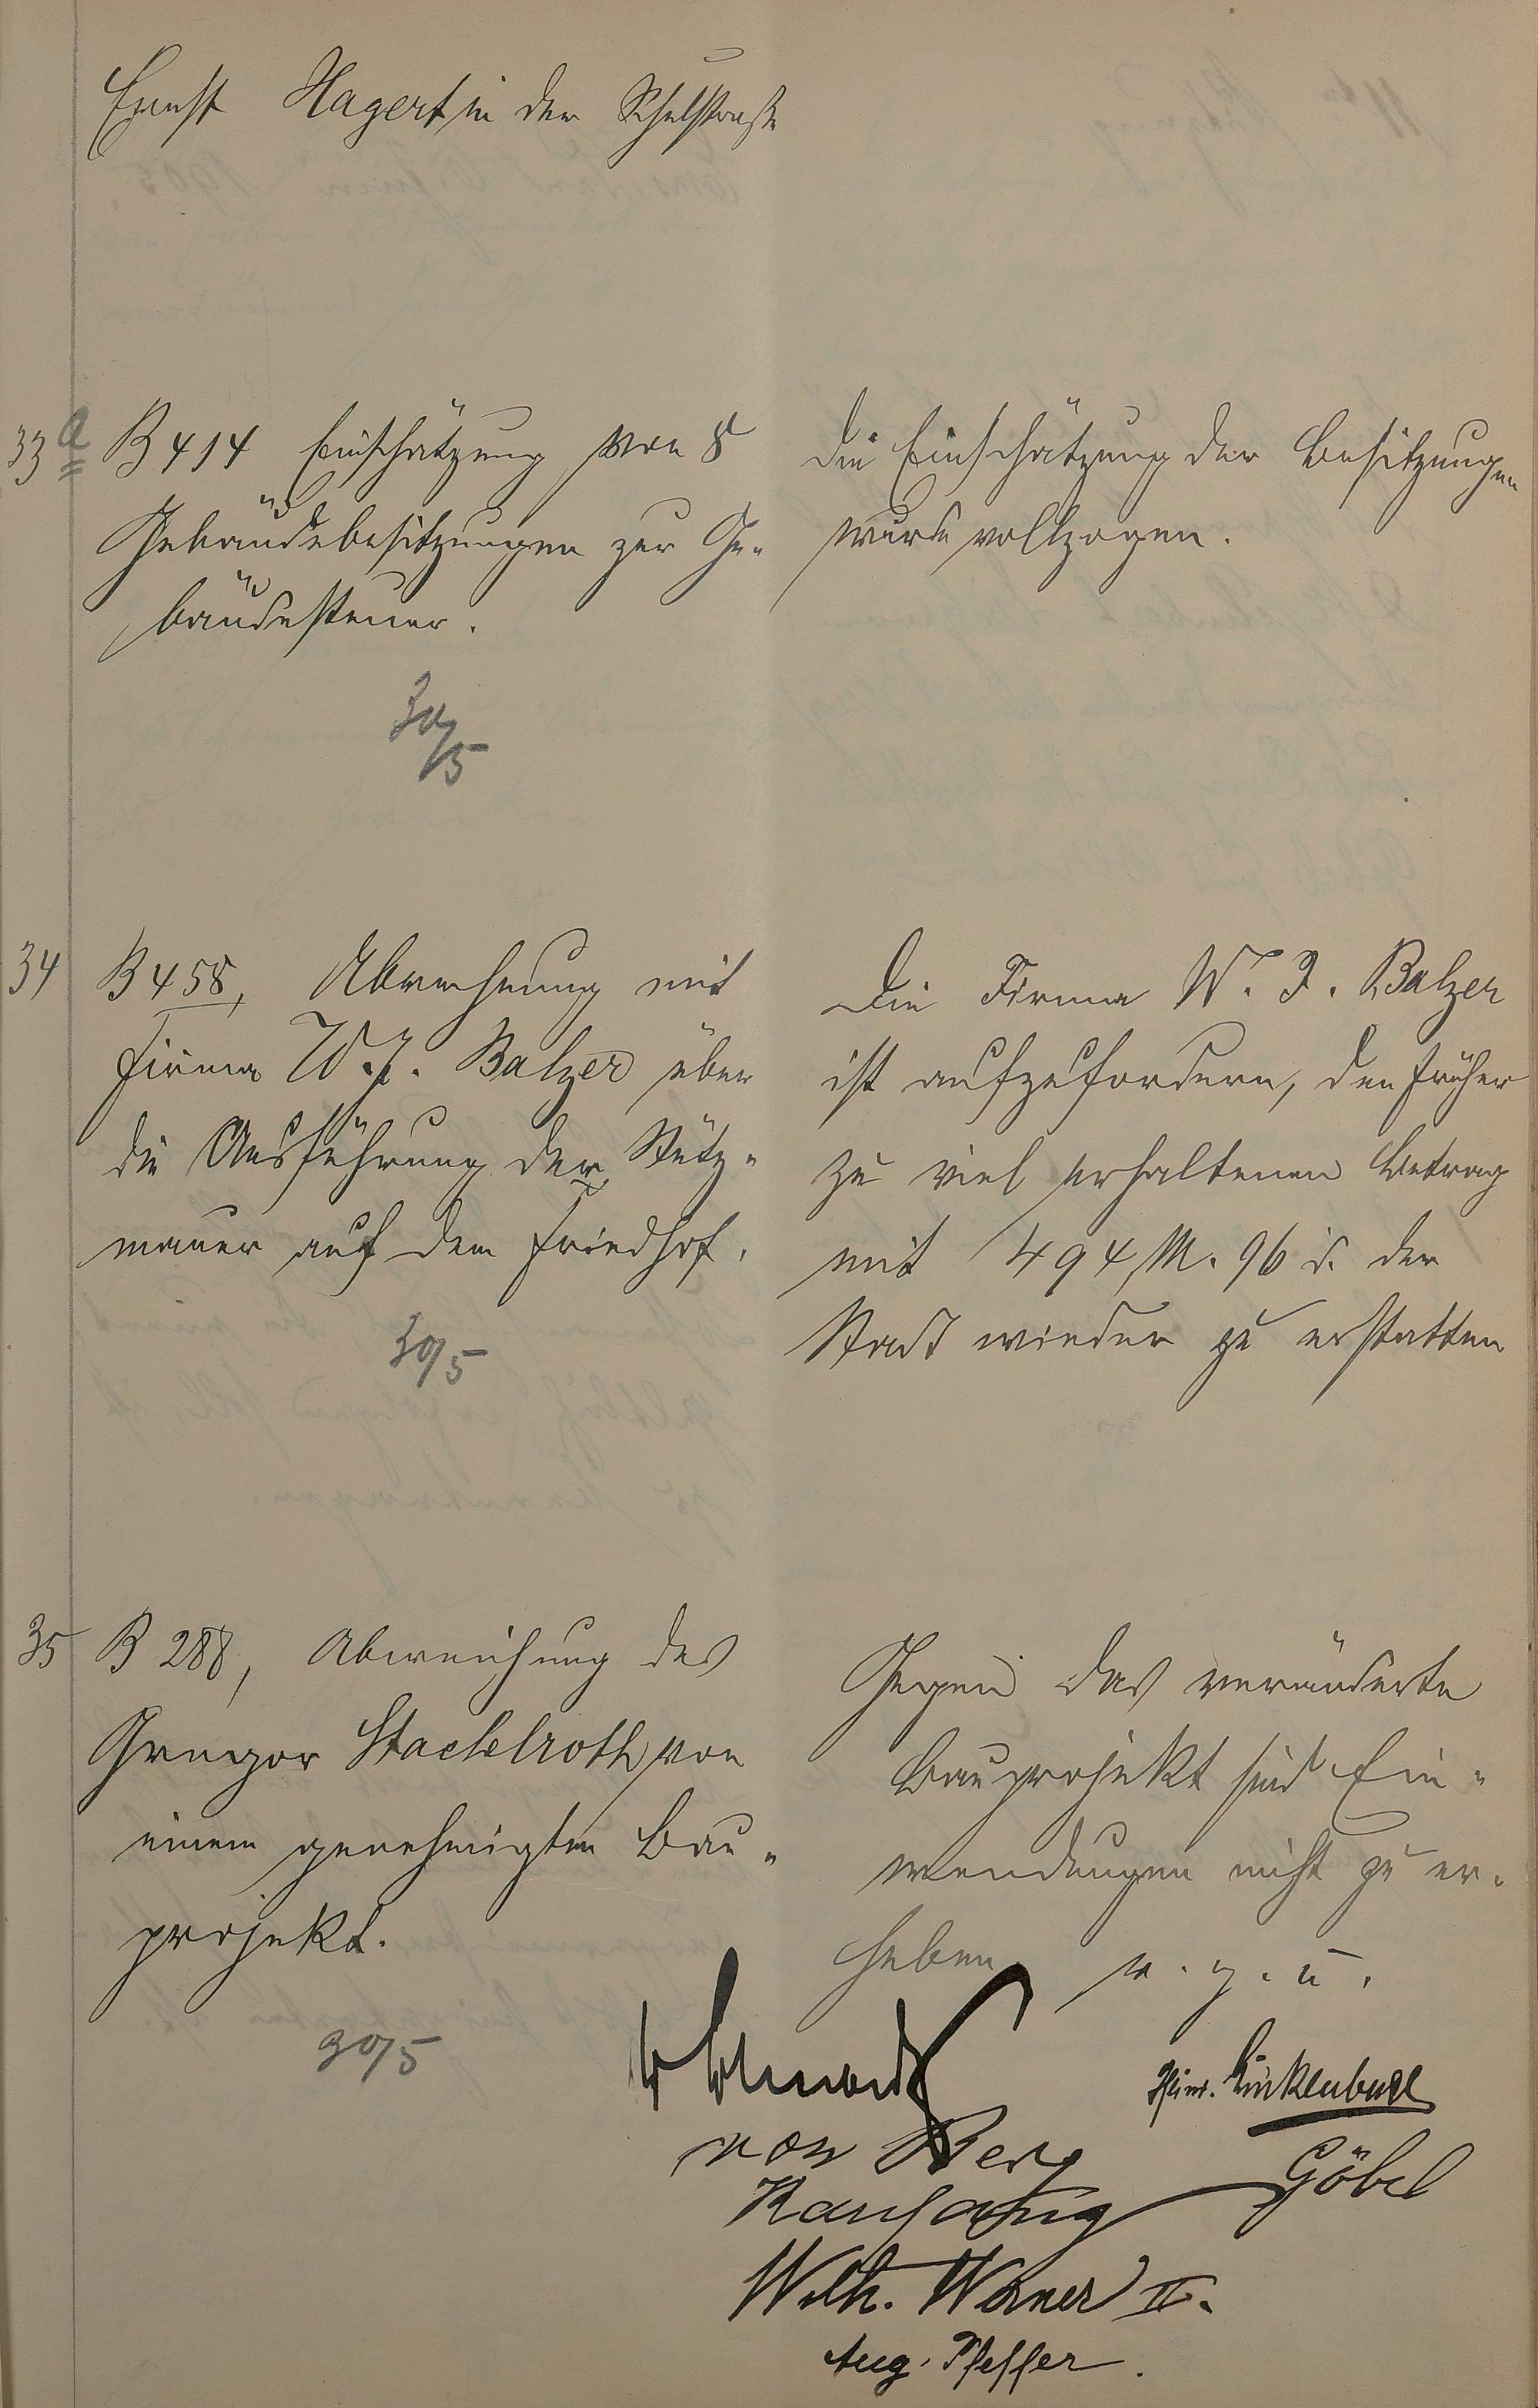 Ernst Hagert in der Schulstraße
33a B 414 Einschätzung von 8
Gebäudebesitzungen zur Ge-
bäudesteuer.
30/5
Die Einschätzung der Besitzungen
wurde vollzogen.
34 B 458, Abrechnung mit
Firma W. J. Balzer über
die Ausführung der Stütz-
mauer auf dem Friedhof.
30/5
Die Firma W. J. Balzer
ist aufzufordern, den früher
zu viel erhaltenen Betrag
mit 494 M. 96 d. der
Stadt wieder zu erstatten
35 B 288, Abweichung des
Gregor Stachelroth von
einem genehmigten Bau-
projekt.
30/5
Gegen das veränderte
Bauprojekt sind Ein-
wendungen nicht zu er-
heben v. g. u.
von Berg
Göbel
Wilh. Werner II.
Aug. Pfeffer.